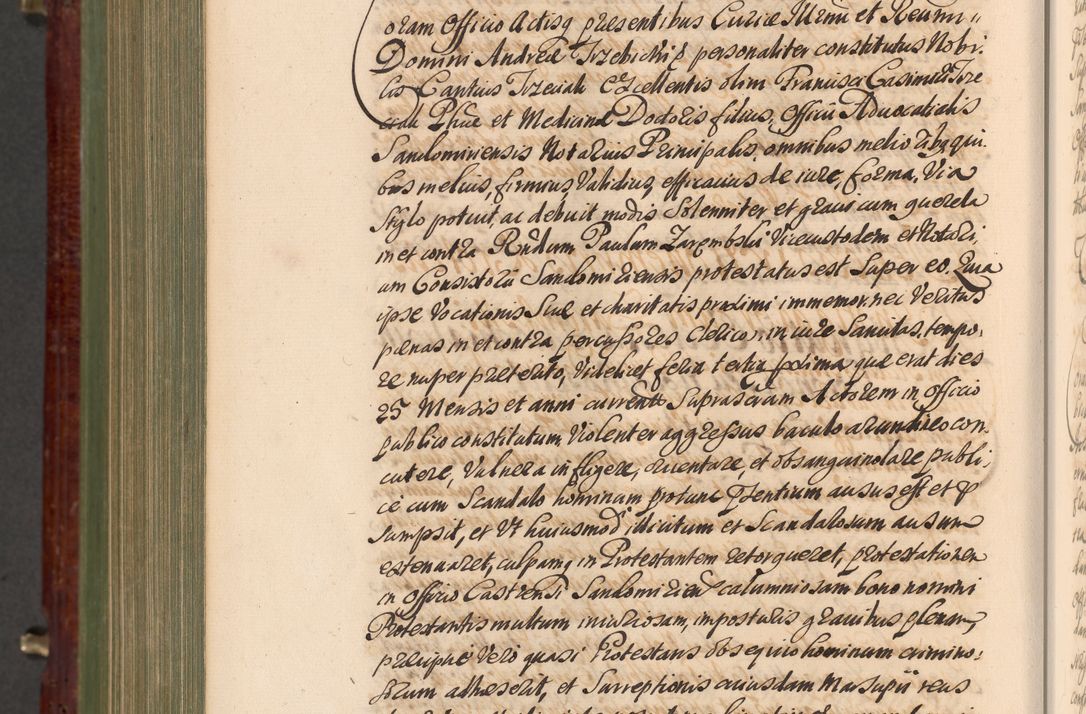 oram Officio Actisq presentibus Curiæ Illrmi et Reumi
Domini Andreæ Trzebicki personaliter constitutus Nobi
lis Cantius Trzeciak Excellentis olim Francisci Casimiri Trze
ciak Phiæ et Medicinæ Doctoris filius, Officii Advocatialis
Sandomiriensis Notarius Principalis, omnibus melioribq qui
bus melius, firmius, Validius, efficacius de iure, forma, Via
Stylo potuit, ac debuit modis Solenniter et graui cum querela
in et contra Rndum Paulum Zarembski Vicecustodem et Notari
um Consistorii Sandomiriensis protestatus est Super eo. Quia
ipse Vocationis Suæ et charitatis proximi immemor, nec Veritus
pænas in et contra percussores Clerico, in iure Sancitas, tempo
re nuper præterito, Videlicet feria tertia proxima quæ erat dies
25 Mensis et anni currentis Suprascriptum Actorem in officio
publico constitutum Violenter aggressus baculo arundineo con
cutere, Vulnera infligere, cruentare, et obsanguinolare, publi
ce cum Scandalo hominum protunc præsentium ausus est et p
sumpsit, et Vt huiusmodi illicitum et Scandalosum ausum
extenuaret, culpamq in Protestantem retorqueret, protestationem
in Officio Castrensi Sandomirien calumniosam bono nomini
Protestantis multum iniuriosam, imposturis grauibus plenam,
præcipue Vero quasi Protestans obsequio hominum crimino
sorum adhæserit, et Surreptionis cuiusdam Marsupii reus